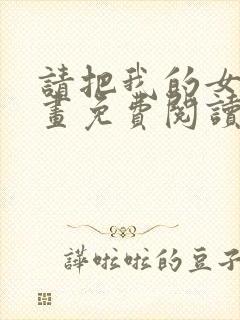 請把我的女
畫免費閱讀
譁啦啦的豆子